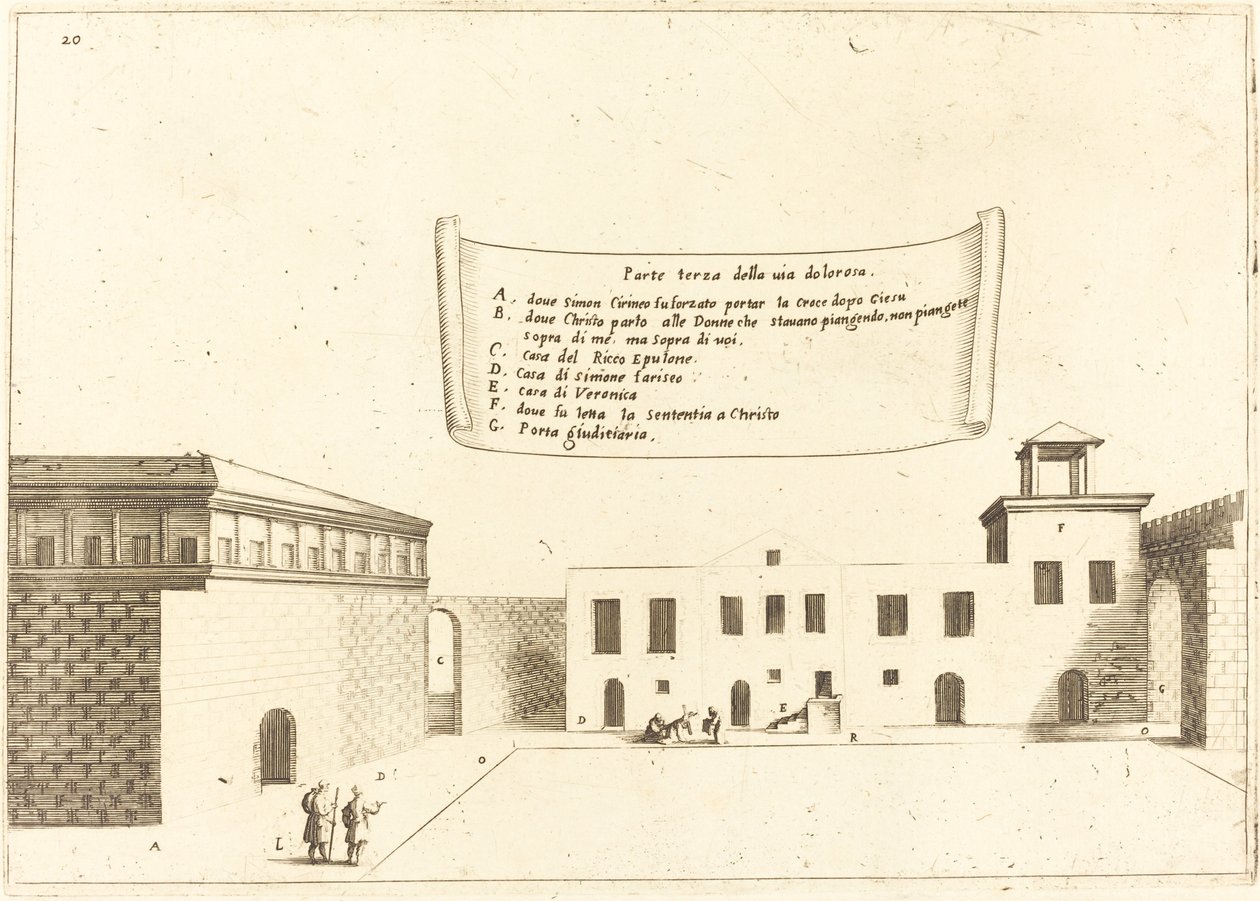 20
Parte terza della uia dolorosa.
A. doue Simon Cirineo fu forzato portar la croce dopo Giesu
B. doue Christo parlo alle Donne che stauano piangendo, non piangete
sopra di me, ma sopra di uoi.
C. Casa del Ricco Epulone.
D. Casa di Simone fariseo
E. Casa di Veronica
F. doue fu letta la Sententia a Christo
G. Porta giuditiaria.
F
C
G
D
E
R
O
D
O
A
L